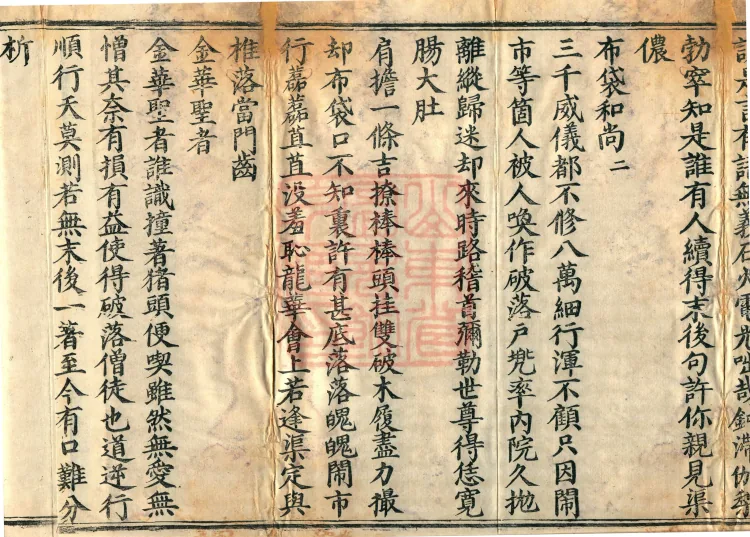 無義石火電光咄哉鈍滯
勃窣知是誰有人續得末後句許你親見渠
儂
布袋和尚二
三千威儀都不修八萬細行渾不顧只因鬧
市等箇人被人喚作破落戶兜率內院久抛
離縱歸迷却來時路稽首彌勒世尊得恁寬
腸大肚
肩擔一條吉撩棒棒頭挂雙破木履盡力撮
却布袋口不知裏許有甚底落落魄魄鬧市
行磊磊苴苴没羞恥龍華會上若逢渠定與
椎落當門齒
金華聖者
金華聖者誰識撞著猪頭便喫雖然無愛無
憎其奈有損有益使得破落僧徒也道逆行
順行天莫測若無末後一著至今有口難分
析